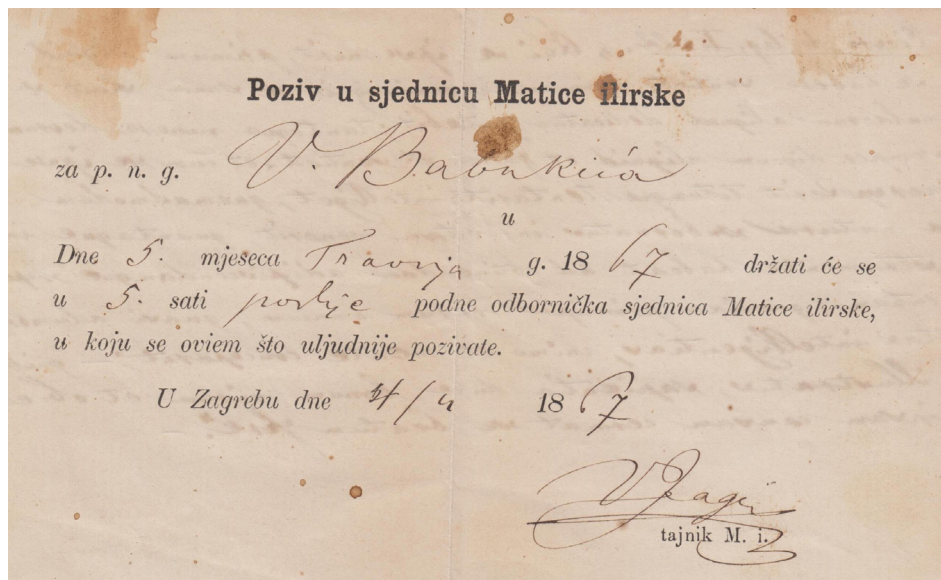 Poziv u sjednicu Matice ilirske
za p. n. g. V. Babukića
u
Dne 5. mjeseca Travnja g. 1867 držati će se
u 5. sati poslije podne odbornička sjednica Matice ilirske,
u koju se oviem što uljudnije pozivate.
U Zagrebu dne 4/4 1867
V Jagić
tajnik M. i.